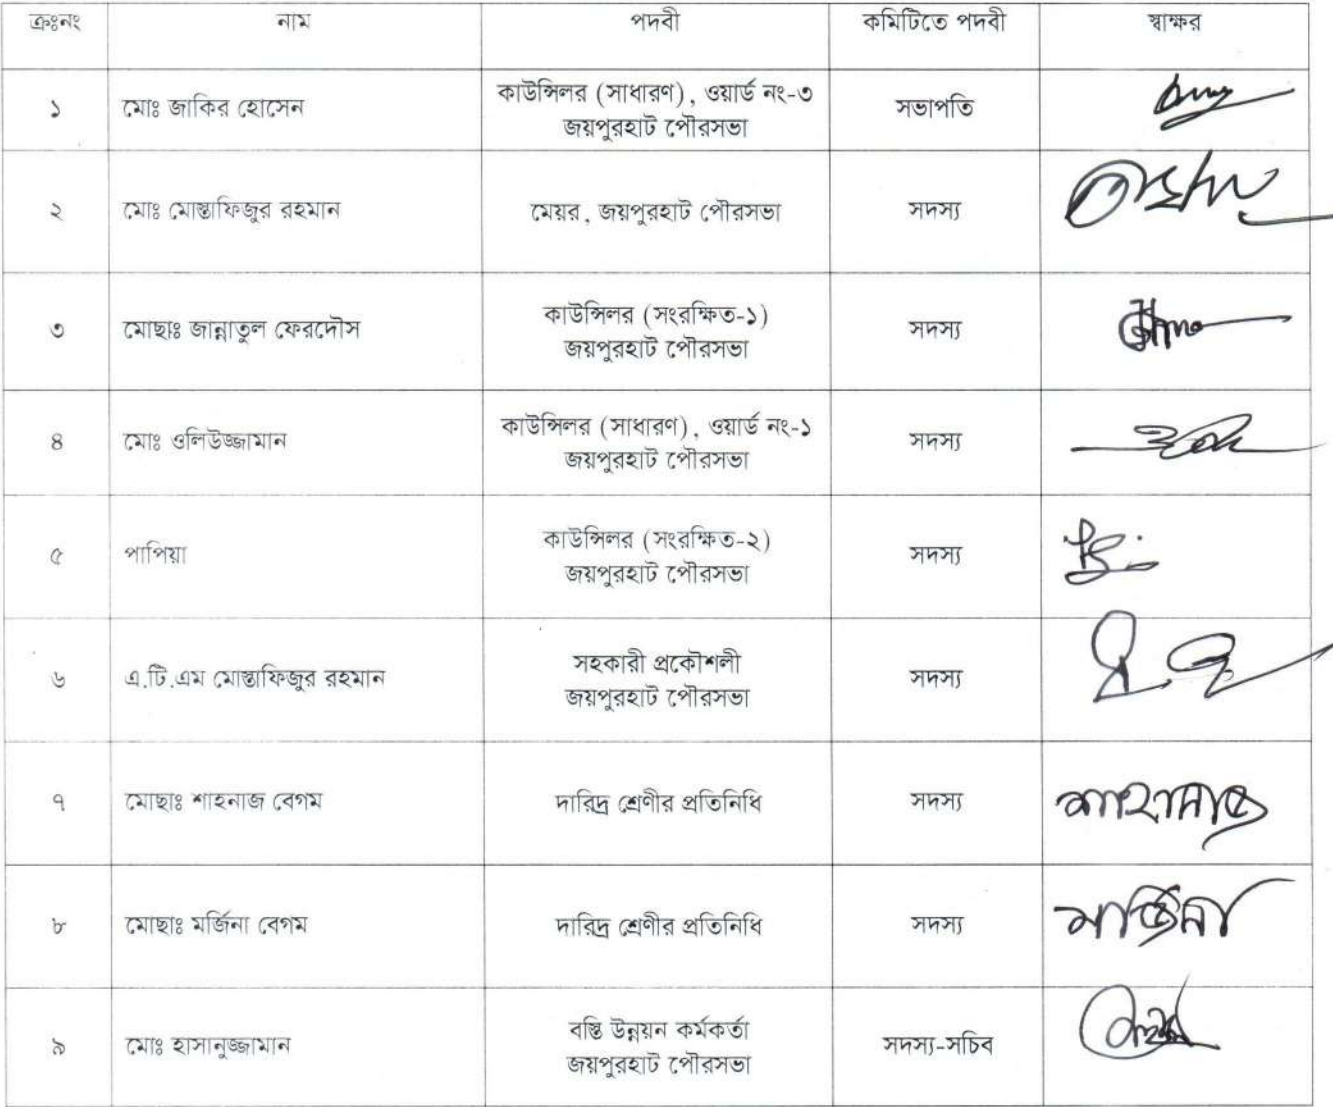 ক্রঃনং নাম পদবী কমিটিতে পদবী স্বাক্ষর
১ মোঃ জাকির হোসেন কাউন্সিলর (সাধারণ), ওয়ার্ড নং-৩ সভাপতি
জয়পুরহাট পৌরসভা
২ মোঃ মোস্তাফিজুর রহমান মেয়র, জয়পুরহাট পৌরসভা সদস্য
৩ মোছাঃ জান্নাতুল ফেরদৌস কাউন্সিলর (সংরক্ষিত-১) সদস্য
জয়পুরহাট পৌরসভা
৪ মোঃ ওলিউজ্জামান কাউন্সিলর (সাধারণ), ওয়ার্ড নং-১ সদস্য
জয়পুরহাট পৌরসভা
৫ পাপিয়া কাউন্সিলর (সংরক্ষিত-২) সদস্য
জয়পুরহাট পৌরসভা
৬ এ.টি.এম মোস্তাফিজুর রহমান সহকারী প্রকৌশলী সদস্য
জয়পুরহাট পৌরসভা
৭ মোছাঃ শাহনাজ বেগম দারিদ্র শ্রেণীর প্রতিনিধি সদস্য শাহানাজ
৮ মোছাঃ মর্জিনা বেগম দারিদ্র শ্রেণীর প্রতিনিধি সদস্য মর্জিনা
৯ মোঃ হাসানুজ্জামান বস্তি উন্নয়ন কর্মকর্তা সদস্য-সচিব
জয়পুরহাট পৌরসভা